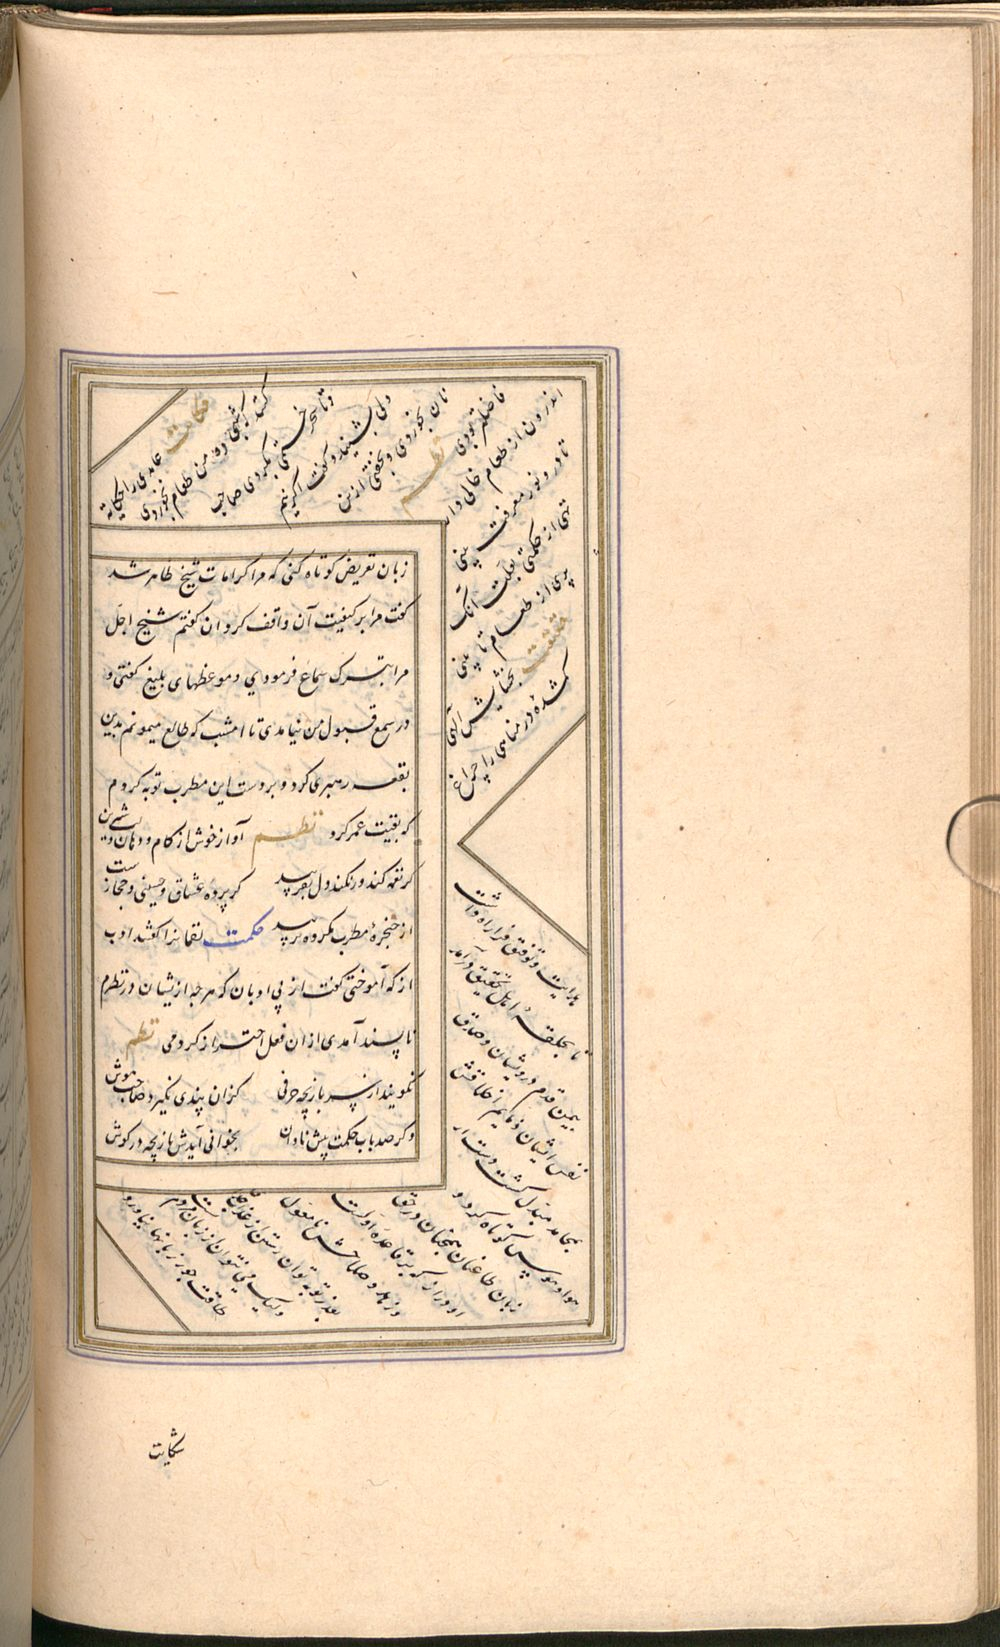 زبان تعریض کوتاه کنی که مرا کرامات شیخ ظاهر شد
گفت مرا بر کیفیت آن واقف کردان گفتم شیخ اجل
مرا بترک سماع فرمودی و موعظهای بلیغ گفتی و
در سمع قبول من نیامدی تا امشب که طالع میمونم بدین
بقعه رهبری کرد و بر دست این مطرب توبه کردم
که بقیت عمر کرد نظم آواز خوش از کام و دهان و لب شیرین
کر نغمه کند ور نکند دل بفریبد کر پرده عشاق و حسینی و حجاز ست
از حنجرهٔ مطرب مکروه نزیبد حکمت لقمانرا گفتند ادب
از که آموختی گفت از بی ادبان که هر چه از یشان در نظرم
ناپسند آمدی از ان فعل احتراز کردمی نظم
نکویند از سر بازیچه حرفی کزان پندی نکیرد صاحب هوش
و کر صد باب حکمت پیش نادان بخوانی آیدش بازیچه در کوش
حکایت عابدی را حکایة
کنند که شبی ده من طعام بخوردی
و تا سحر ختمی بکردی صاحب
دلی بشنید و کفت اکر نیم
نان بخوردی و بخفتی ازین
فاضلتر بودی نظم
اندرون از طعام خالی دار
تا درو نور معرفت بینی
تهی از حکمتی بعلت آنک
پری از طعام تا بینی
حقیقت بخشایش الهی
کمشدهٔ در مناهی را چراغ
هدایت و توفیق فرا راه داشت
تا بحلقهٔ اهل تحقیق درآمد
بیمن قدم درویشان و صدق
نفس ایشان ذمایم اخلاقش
بمحامد مبدل کشت دست از
هوا و هوس کوتاه کرد و
زبان طاعنان همچنان در حق
او دراز که بر قاعده اولست
و زهد و صلاحش نامعول
بعذر توبه توان رستن از عذاب
ولیک می نتوان از زبان مردم رست
طاقت جور زبانها نیاورد و
شکایت